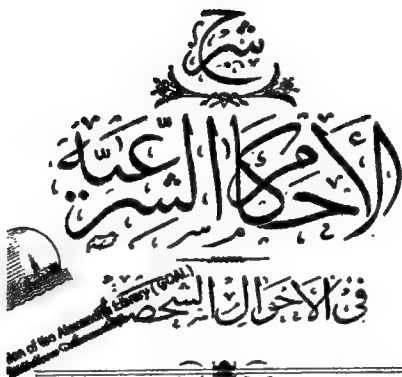 شرح
الأحكام الشرعية
في الأحوال الشخصية
of the Alexandria Library (GOAL)